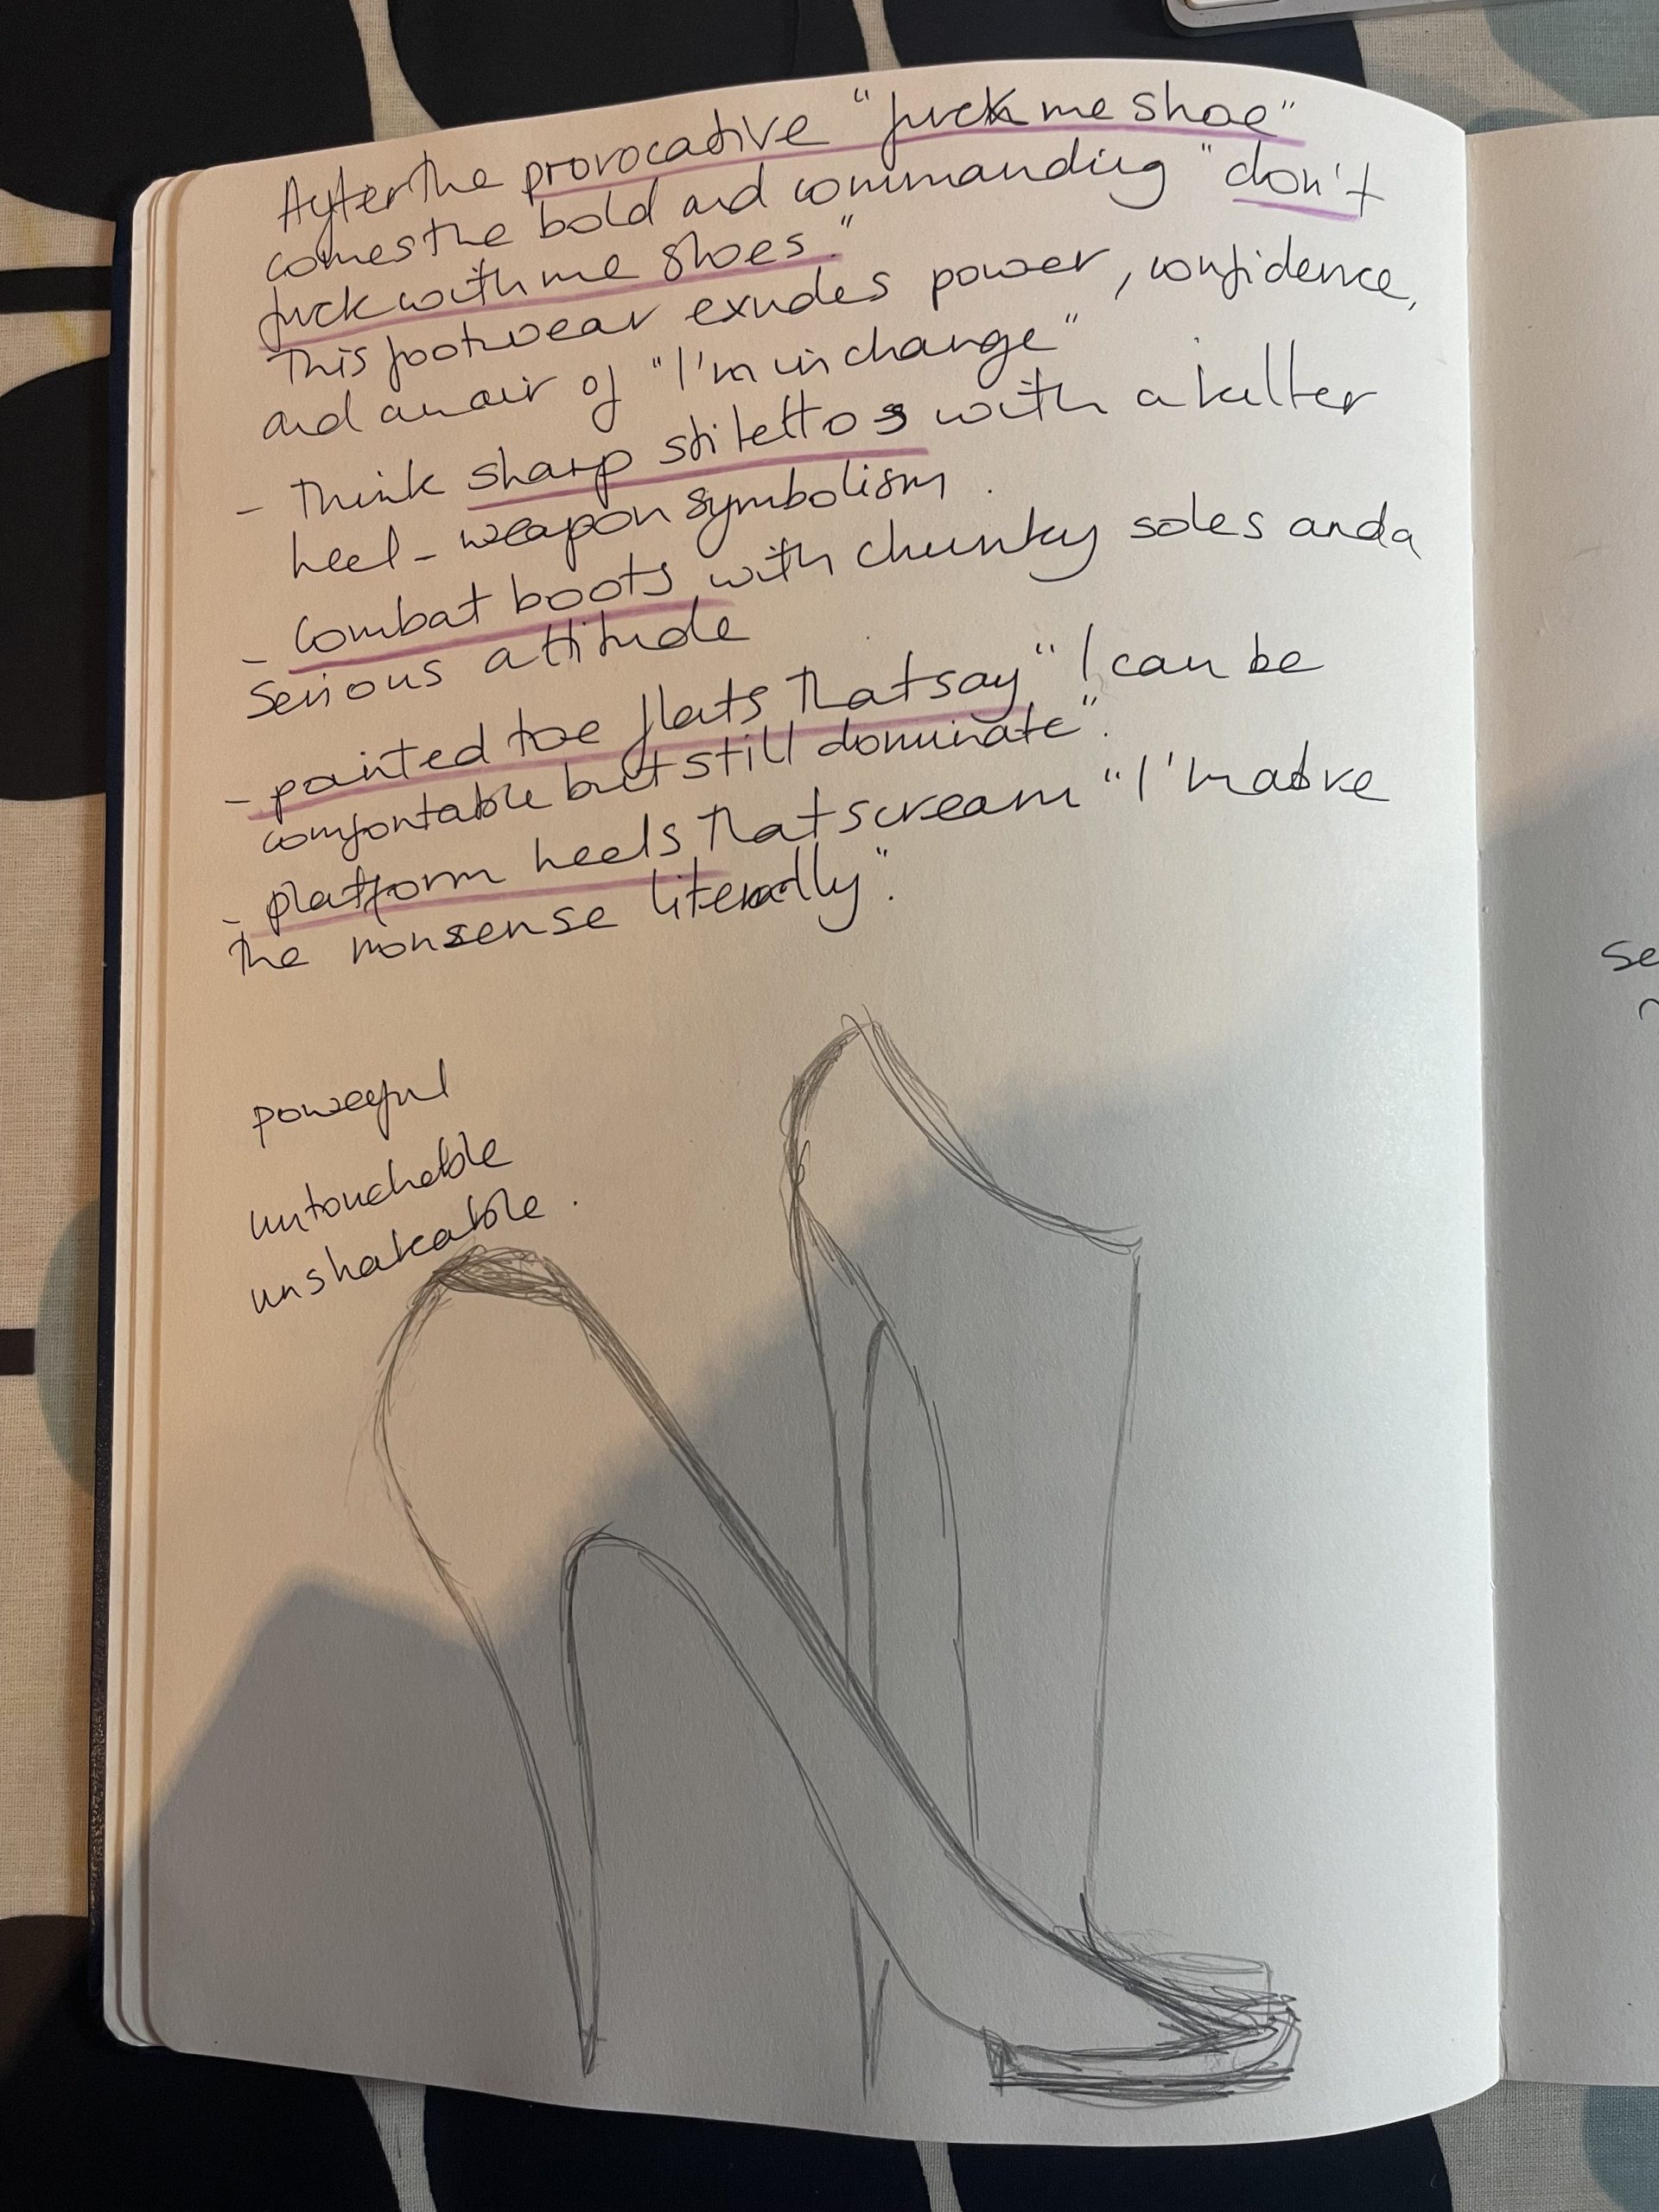 After the provocative "fuck me shoe"
comes the bold and commanding "don't
fuck with me shoes."
This footwear exudes power, confidence,
and an air of "I'm in change"
- Think sharp stilettos with a killer
heel - weapon symbolism.
- Combat boots with chunky soles and a
serious attitude
- pointed toe flats that say "I can be
comfortable but still dominate".
- platform heels that scream "I'm above
the nonsense literally".
powerful
untouchable
unshakeable.
se